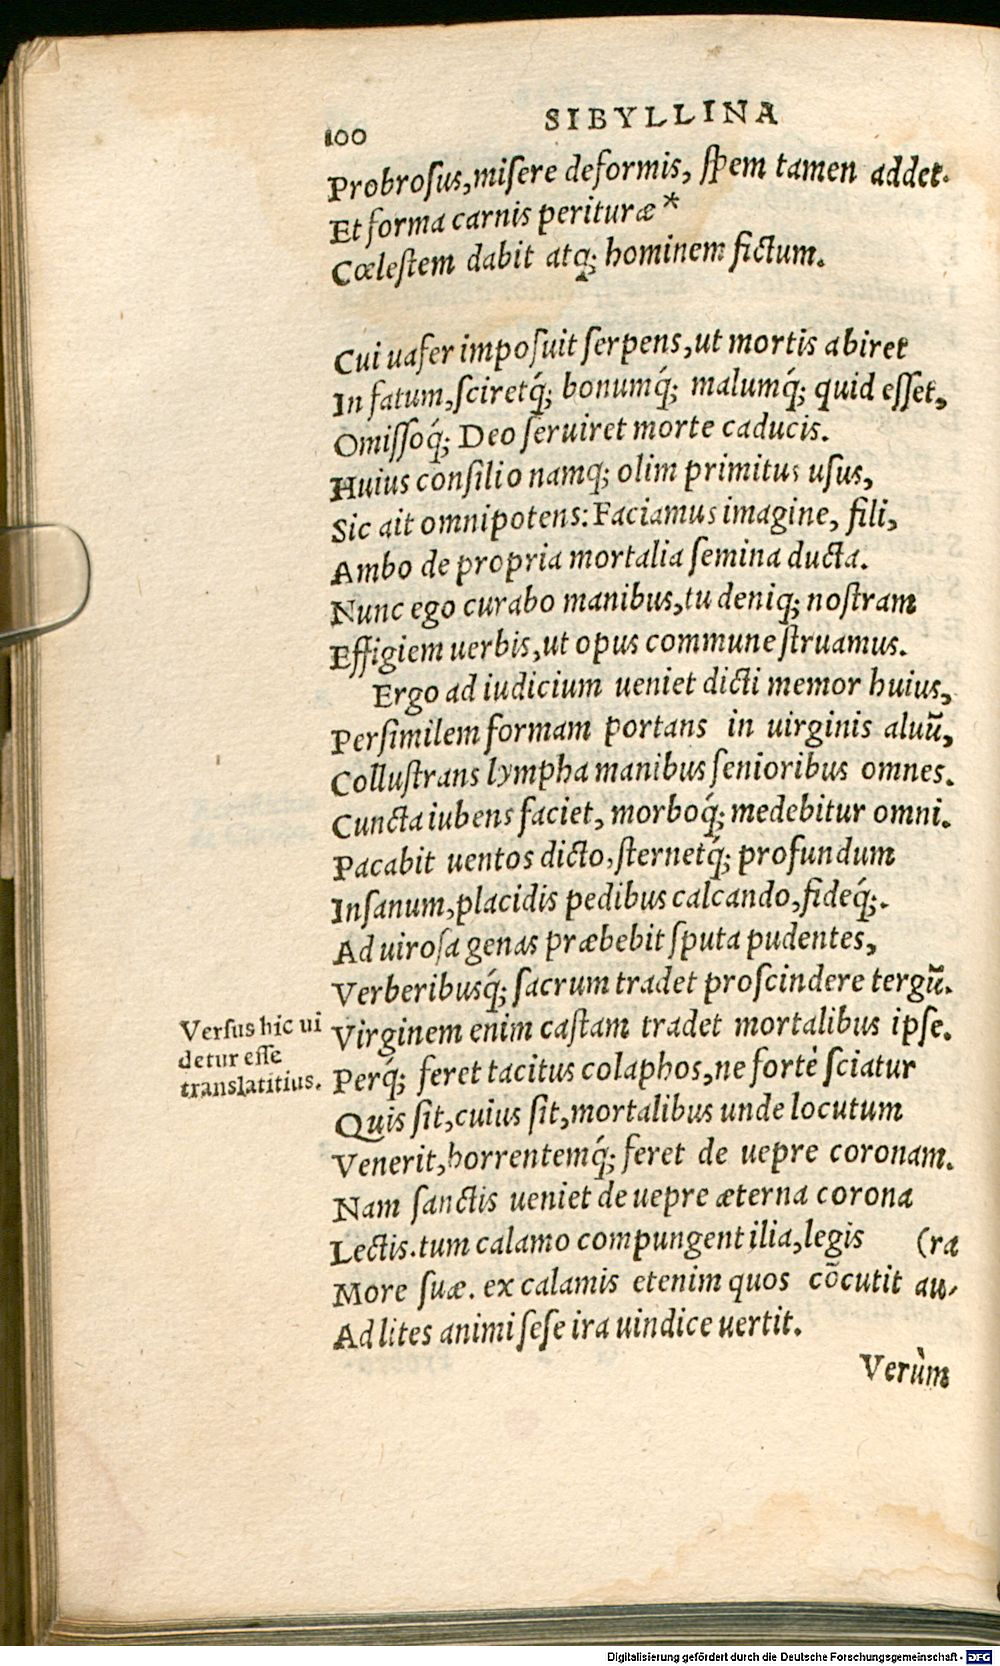 100
SIBYLLINA
Probroſus, miſere deformis, ſpem tamen addet.
Et forma carnis perituræ *
Cœleſtem dabit atq; hominem fictum.
Cui uafer impoſuit ſerpens, ut mortis abiret
In fatum, ſciretq́; bonumq́; malumq́; quid eſſet,
Omiſſoq́; Deo ſeruiret morte caducis.
Huius conſilio namq; olim primitus uſus,
Sic ait omnipotens: Faciamus imagine, fili,
Ambo de propria mortalia ſemina ducta.
Nunc ego curabo manibus, tu deniq; noſtram
Effigiem uerbis, ut opus commune ſtruamus.
Ergo ad iudicium ueniet dicti memor huius,
Perſimilem formam portans in uirginis aluũ,
Colluſtrans lympha manibus ſenioribus omnes.
Cuncta iubens faciet, morboq́; medebitur omni.
Pacabit uentos dicto, ſternetq́; profundum
Inſanum, placidis pedibus calcando, fideq́;.
Ad uiroſa genas præbebit ſputa pudentes,
Verberibusq́; ſacrum tradet proſcindere tergũ.
Versus hic ui
detur eſſe
translatitius.
Virginem enim caſtam tradet mortalibus ipſe.
Perq́; feret tacitus colaphos, ne fortè ſciatur
Quis ſit, cuius ſit, mortalibus unde locutum
Venerit, horrentemq́; feret de uepre coronam.
Nam ſanctis ueniet de uepre æterna corona
Lectis. tum calamo compungent ilia, legis (ra
More ſuæ. ex calamis etenim quos cõcutit au-
Ad lites animi ſeſe ira uindice uertit.
Verùm
Digitalisierung gefördert durch die Deutsche Forschungsgemeinschaft - DFG